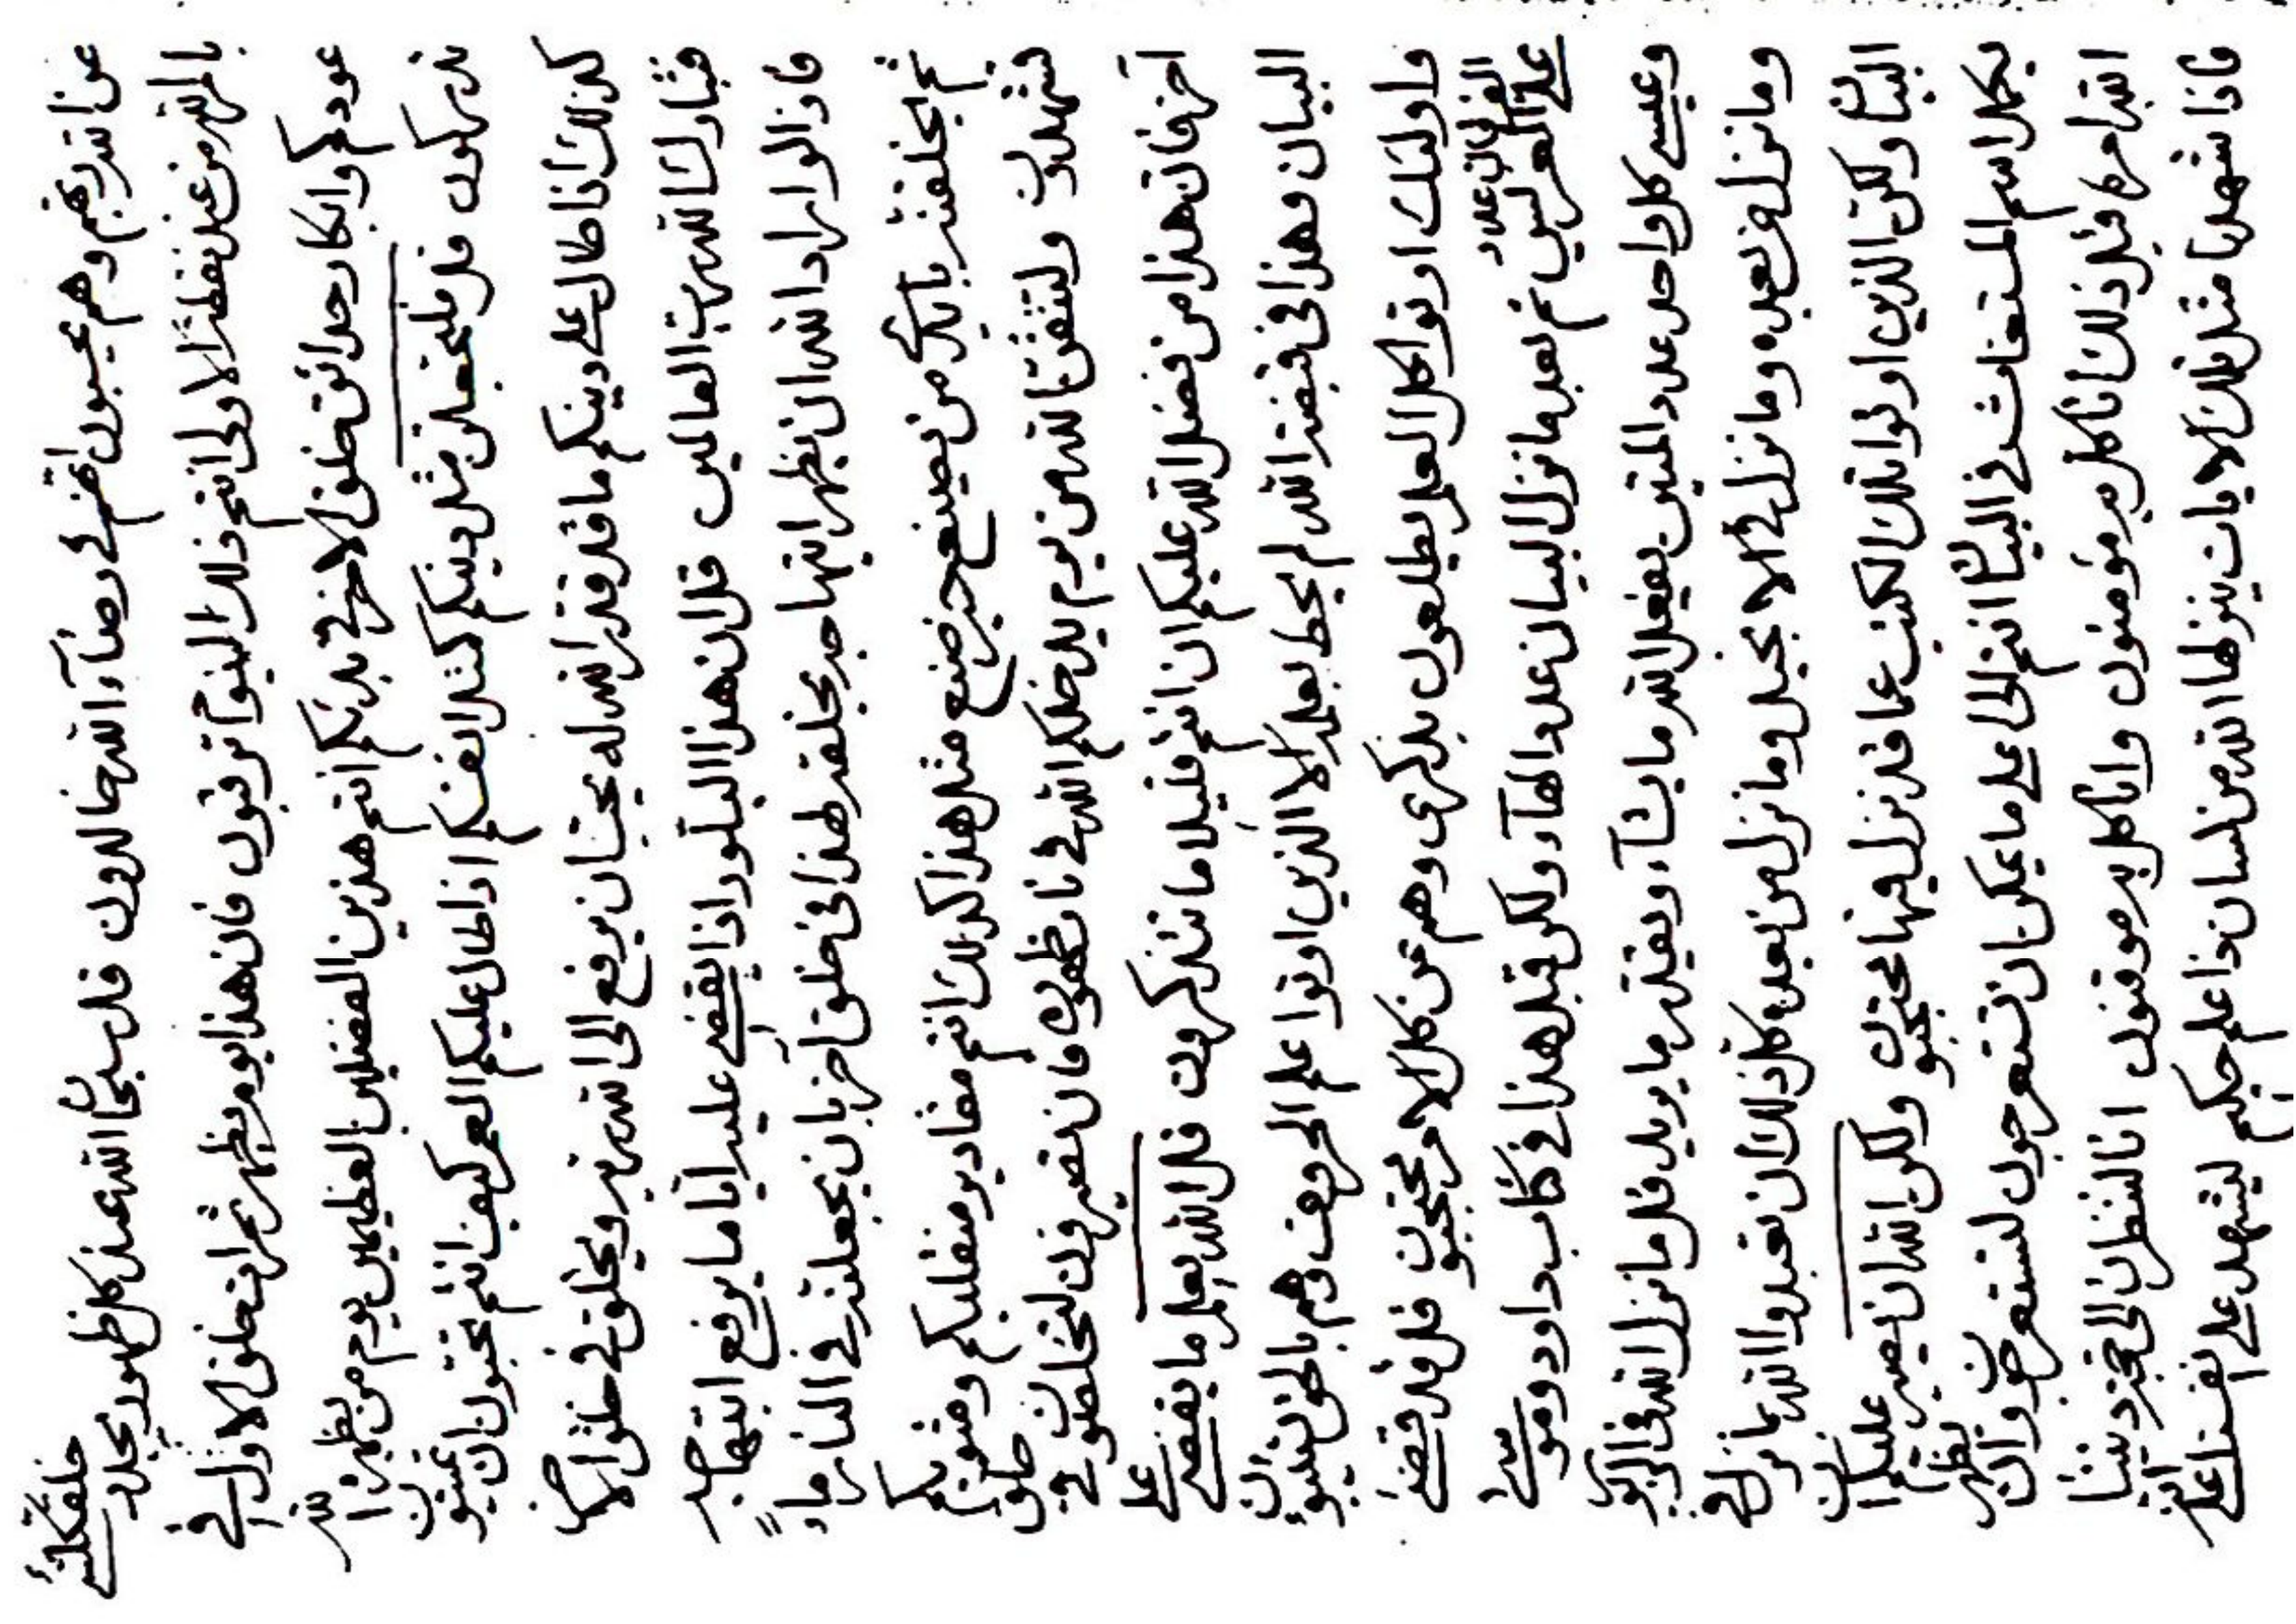 عن الله ربهم وهم يحسبون انهم في رضاء الله خالدون قل سبحان الله عند كل ظهور يجدد خلق كلشئ
من عند نقطة الاولى انتم ذلك اليوم ترقبون فان هذا يوم يظهر ثمرات خلق الاول في
عودكم وابكار حدائق خلق الاخر في بدئكم انتم هذين الفضلين العظيمين يوم من يظهره الله
تدركون قل فليجعلن مثل دينكم كمثل انفسكم اذا طال عليكم العمر كيف انتم تحبون ان تميتون
كذلك اذا طال على دينكم ما قد قدر الله له يحب ان يرفع الى الله ربه ويخلق في خلق الاخر
فتبارك الله رب العالمين قل ان هذا البلور اذا يقضي عليه اياما يرفع ابتهاجه
فاذا لو اراد الله ان يظهر ابتهاجه بخلقه لهذا في خلق آخر بان يجعلنه في النار ماء
ثم يخلقنه من يصنع خير صنع مثل هذا كذلك انتم مقادير منقلبكم ومثويكم
تشهدون ولتتقن الله من يوم يدخلكم الله في نار ظهوره فان تصبرون لتخلصون في خلق
آخر فان هذا من فضل الله عليكم ان انتم قليلا ما تتذكرون قل الله يعلم ما يقضي على
البيان وهذا في قبضة الله لم يحط بعلمه الا الذين اوتوا علم الحروف وهم بالحق ينبئون
واولئك اوتوا كل العلم يطلعون بذكرى وهم عن كل الامر محتجبون قل قد قضى
على الفرقان عدد ثم بعد ما نزل البيان عدد الهاء ولكن قبل هذا في كتاب داود وموسى
وعيسى كل واحد عدد المئتين يفعل الله ما يشاء ويقدر ما يريد قل ما نزل الله في الزبور
وما نزل من بعده وما نزل في الانجيل وما نزل من بعده كل ذلك ان تعبدوا الله بما نزل في
البيان ولكن الذين اوتوا تلك الكتب عما قد نزل فيها محتجبون ولكن الله ان يصبر عليكم
اسم المستغاث في البيان انتم الى على ما يمكن ان تتعرجون لتستعرجون وان يظهر
الله امره قبل ذلك انا كل به مؤمنون وانا كل به موقنون انا لننظرن الى حجة ديننا
فاذا شهدنا مثل تلك الايات ينزلها الله من لسان ذا علم حكيم ليشهد على انفسنا على انه